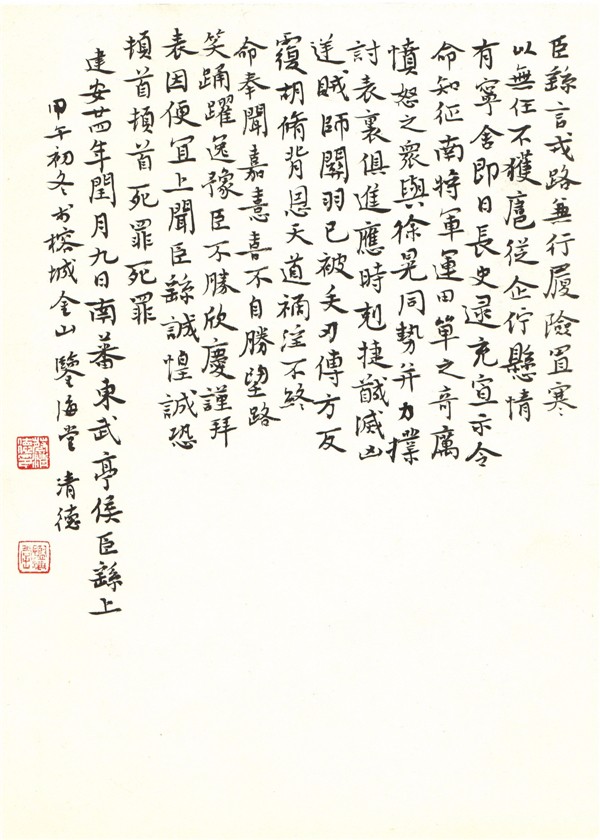 臣繇言戎路兼行履險冒寒
以無任不獲扈從企佇懸情
有寧舍即日長史逯充宣示令
命知征南將軍運田單之奇厲
憤怒之眾與徐晃同勢并力撲
討表裏俱進應時剋捷馘滅凶
逆賊師關羽已被矢刃傅方反
覆胡脩背恩天道禍淫不終
命奉聞嘉憙喜不自勝望路
笑踊躍逸豫臣不勝欣慶謹拜
表因便宜上聞臣繇誠惶誠恐
頓首頓首死罪死罪
建安廿四年閏月九日南蕃東武亭侯臣繇上
甲午初冬书榕城金山鑒海堂 清德